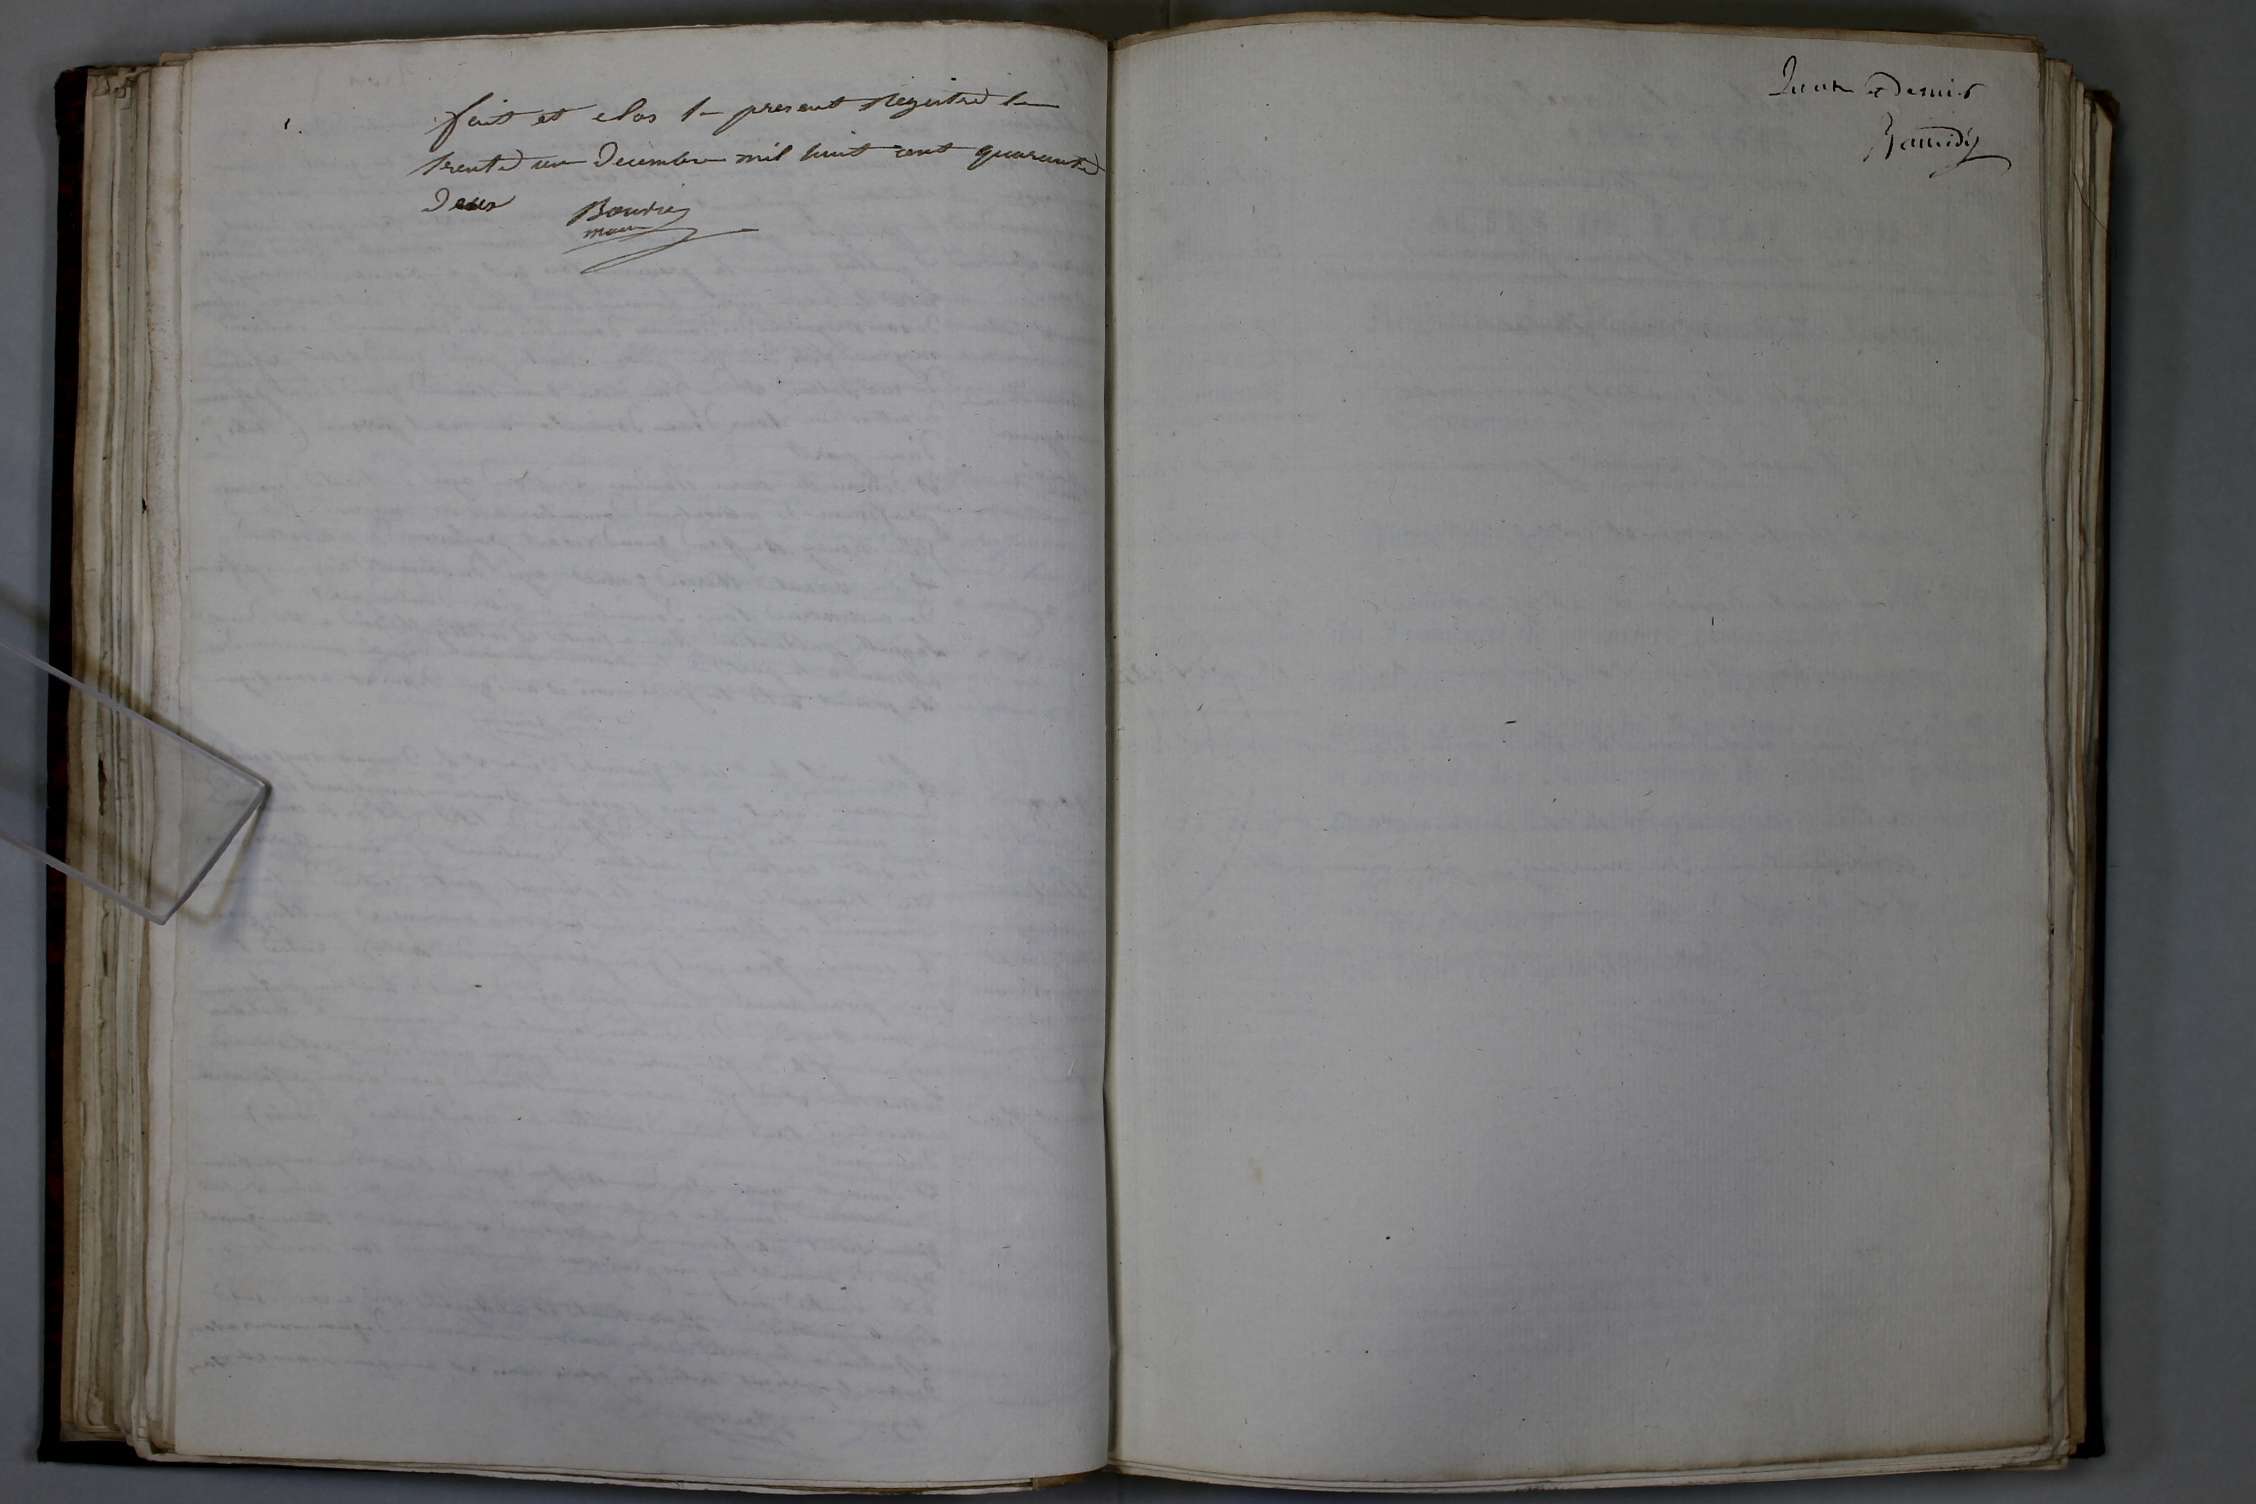 fait et clos le present Registre le
trente un Decembre mil huit cent quarante
deux Boudie
maire
et Dernier